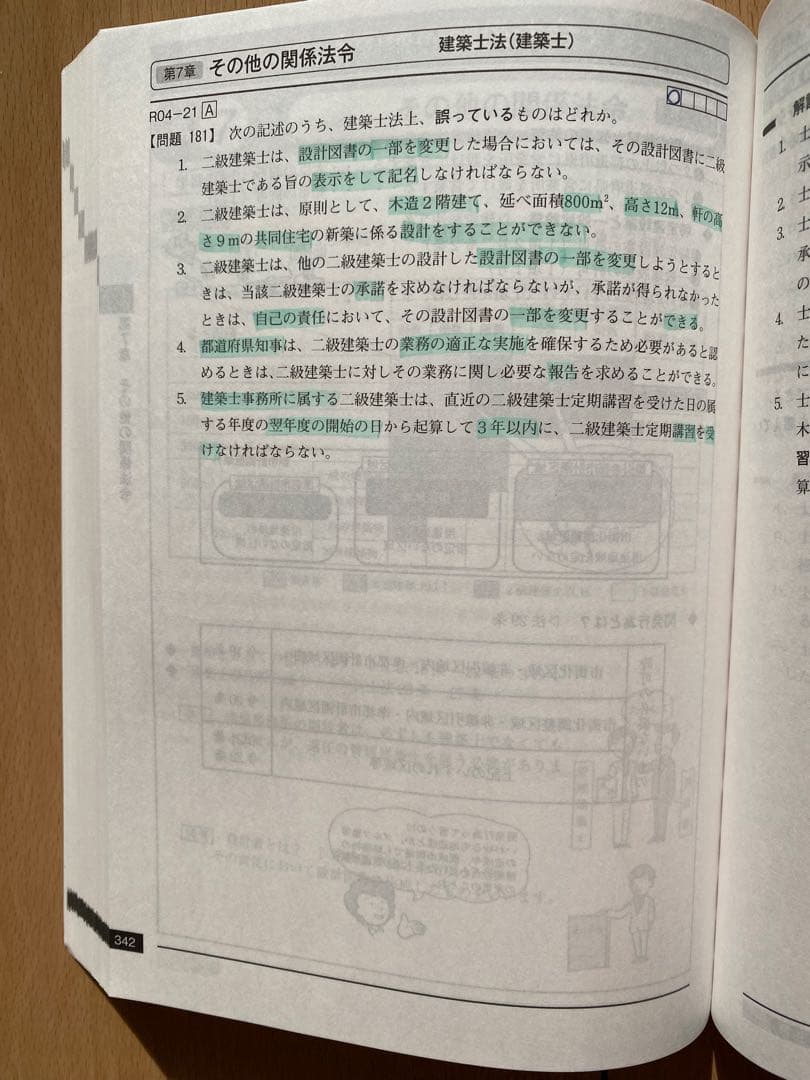 第7章 その他の関係法令 建築士法(建築士)
R04-21 A
【問題 181】 次の記述のうち、建築士法上、誤っているものはどれか。
1. 二級建築士は、設計図書の一部を変更した場合においては、その設計図書に二級
建築士である旨の表示をして記名しなければならない。
2. 二級建築士は、原則として、木造2階建て、延べ面積800m²、高さ12m、軒の高
さ9mの共同住宅の新築に係る設計をすることができない。
3. 二級建築士は、他の二級建築士の設計した設計図書の一部を変更しようとすると
きは、当該二級建築士の承諾を求めなければならないが、承諾が得られなかった
ときは、自己の責任において、その設計図書の一部を変更することができる。
4. 都道府県知事は、二級建築士の業務の適正な実施を確保するため必要があると認
めるときは、二級建築士に対しその業務に関し必要な報告を求めることができる。
5. 建築士事務所に属する二級建築士は、直近の二級建築士定期講習を受けた日の属
する年度の翌年度の開始の日から起算して3年以内に、二級建築士定期講習を受
けなければならない。
342
解説
1. 士
示
2. 士
3. 士
承
の
4. 士
た
に
5. 士
木
習
算